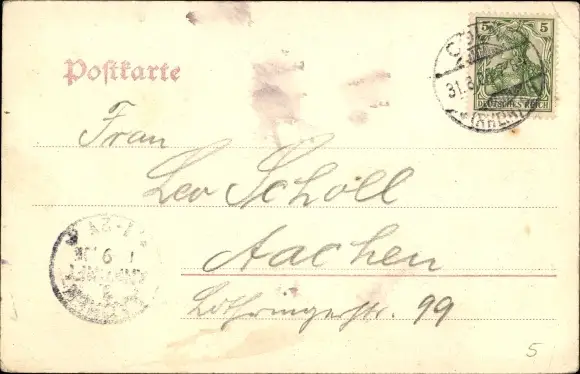 Postkarte
5 5
DEUTSCHES REICH
31.8
(RHEIN)
Frau
Leo Scholl
Aachen
Lothringerstr. 99
1-2 N
1 9
5